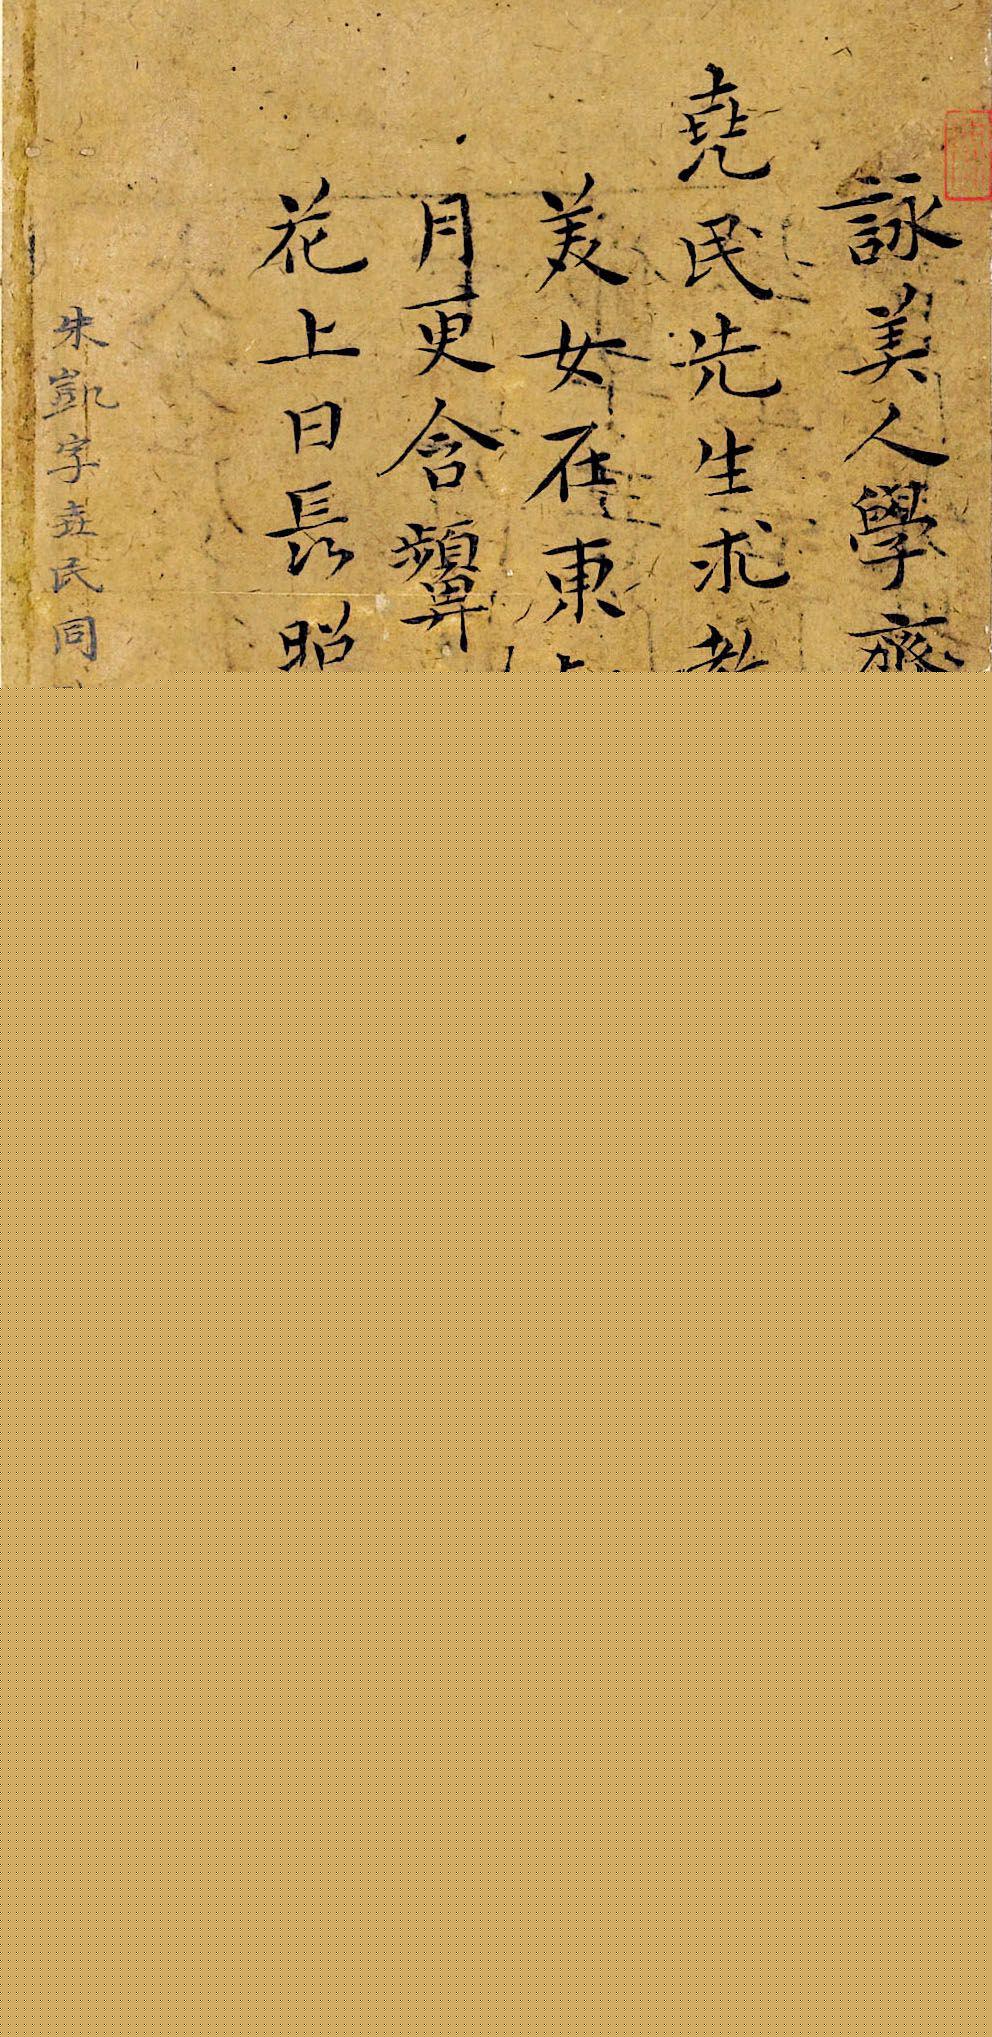 詠美人學齊
堯民先生求教
美女在東
月更含顰
花上日長照
朱凱字垚民同